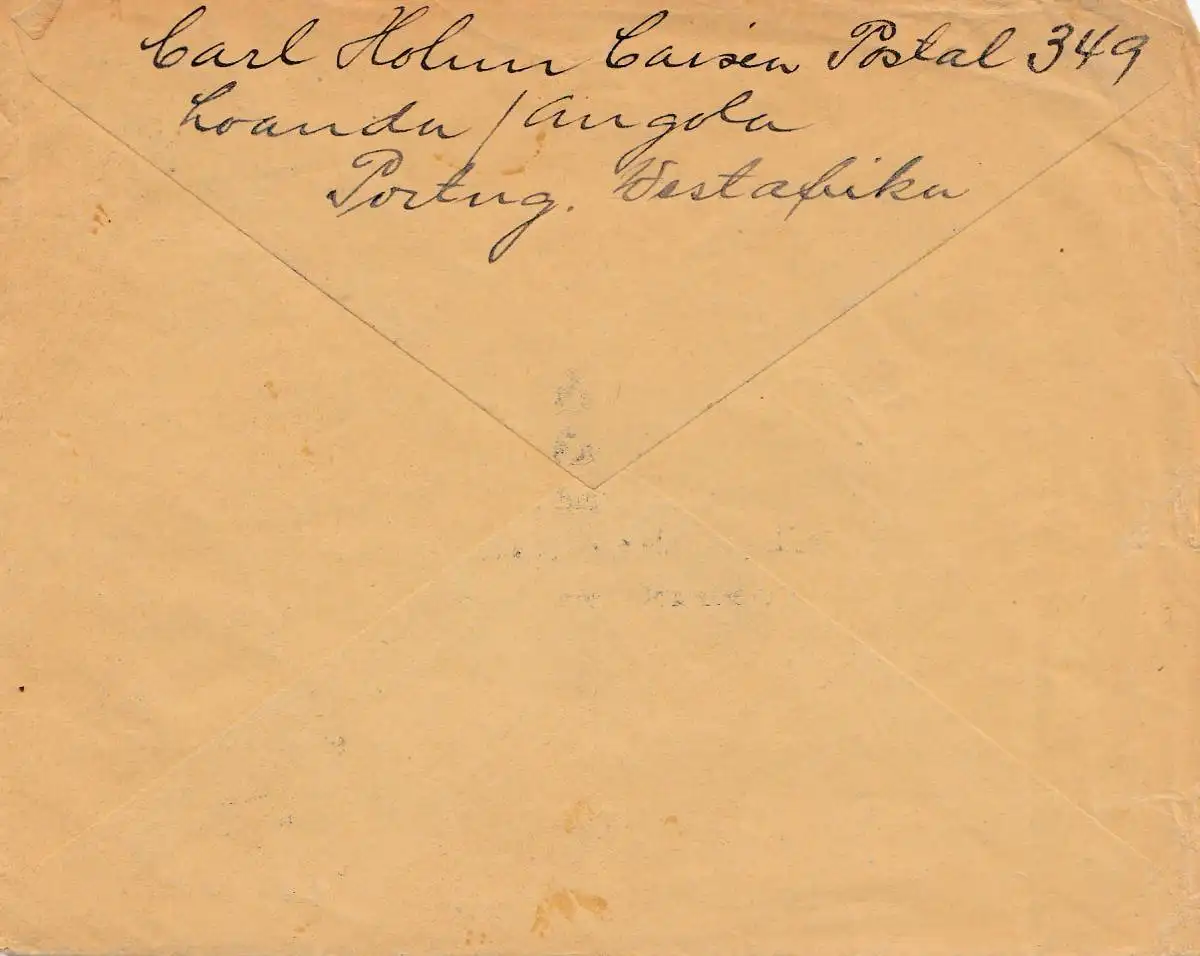 Carl Holm Caixa Postal 349
Loanda / Angola
Portug. Westafrika